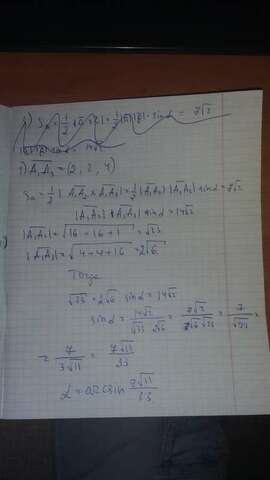 S_Δ = 1/2 |ā × c̄| = 1/2 |ā|·|B̄|·sin α = 7√2
|ā||B̄| sin α = 14√2
A₁A₃ = (2, 2, 4)
S_Δ = 1/2 |A₁A₂ × A₁A₃| = 1/2 |A₁A₂| |A₁A₃| sin α = 7√2
|A₁A₂| · |A₁A₃| sin α = 14√2
|A₁A₂| = √(16 + 16 + 1) = √33
|A₁A₃| = √(4 + 4 + 16) = 2√6
Тогда
√33 · 2√6 sin α = 14√2
sin α = 14√2 / (√33 · 2√6) = 7√2 / (√6 √33) = 7 / √99 =
= 7 / (3√11) = 7√11 / 33
α = arcsin 7√11 / 33